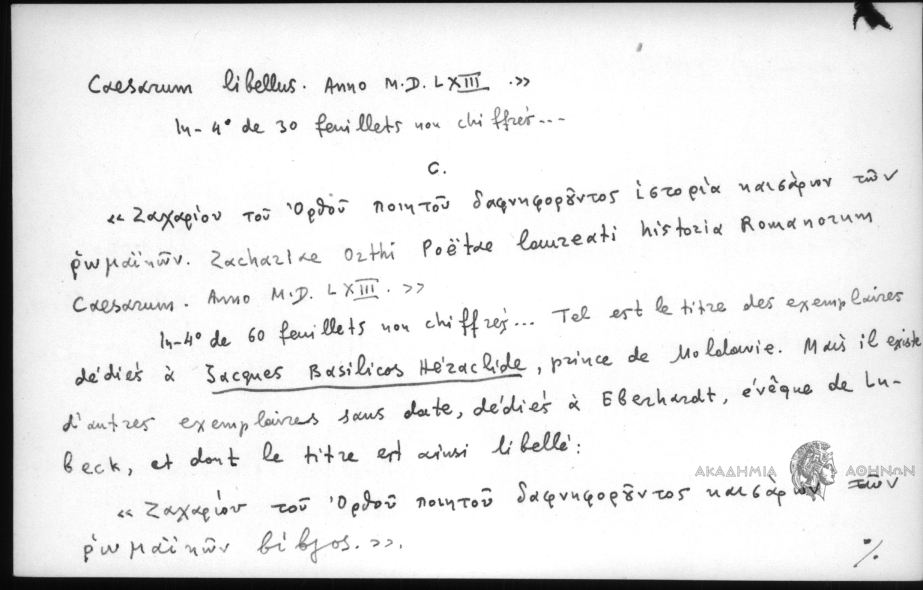 Caesarum libellus. Anno M.D. LXIII .»
In-4° de 30 feuillets non chiffrés...
C.
« Ζαχαρίου τοῦ Ὀρθοῦ ποιητοῦ δαφνηφοροῦντος ἱστορία καισάρων τῶν
ῥωμαϊκῶν. Zachariae Orthi Poëtae laureati historia Romanorum
Caesarum. Anno M.D. LXIII. »
In-4° de 60 feuillets non chiffrés... Tel est le titre des exemplaires
dédiés à Jacques Basilicos Héraclide, prince de Moldavie. Mais il existe
d'autres exemplaires sans date, dédiés à Eberhardt, évêque de Lu-
beck, et dont le titre est ainsi libellé:
ΑΚΑΔΗΜΙΑ ΑΘΗΝΩΝ
« Ζαχαρίου τοῦ Ὀρθοῦ ποιητοῦ δαφνηφοροῦντος καισάρων τῶν
ῥωμαϊκῶν βίβλος.».
%